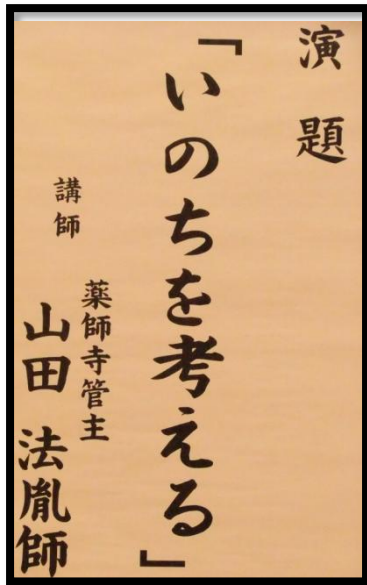 演題
「いのちを考える」
講師
薬師寺管主
山田 法胤師